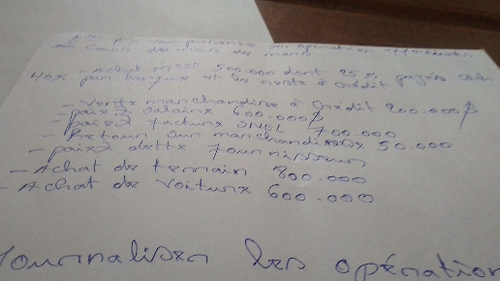 opération effectuées
au cours du mois de mars
- Achat 500.000 dont 25% payés cash
40% par banque et le reste à crédit
- Vente marchandise à crédit 200.000 F
- paiez salaire 600.000 F
- paiez facture SNEL 700.000
- Retour sur marchandises 50.000
- paiez dette fournisseur
- Achat de terrain 800.000
- Achat de voiture 600.000
Journaliser les opération